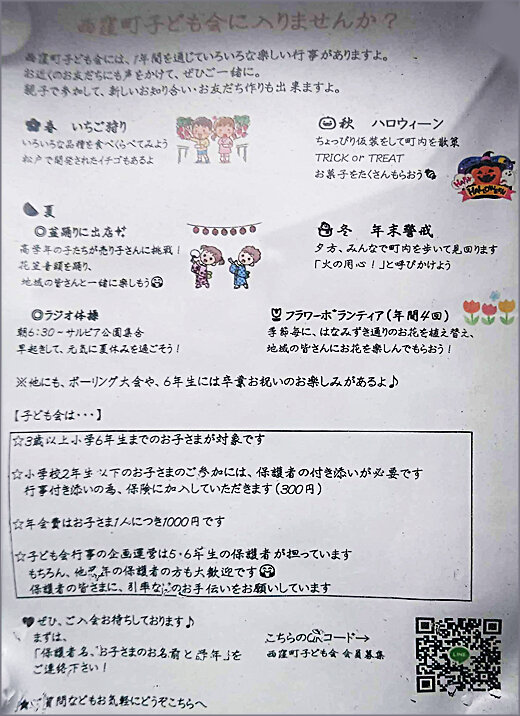 西窪町子ども会に入りませんか？
西窪町子ども会には、1年間を通じていろいろな楽しい行事がありますよ。
お近くのお友だちにも声をかけて、ぜひご一緒に。
親子で参加して、新しいお知り合い・お友だち作りも出来ますよ。
春 いちご狩り
いろいろな品種を食べくらべてみよう
松戸で開発されたイチゴもあるよ
秋 ハロウィーン
ちょっぴり仮装をして町内を散策
TRICK or TREAT
お菓子をたくさんもらおう
HAPPY HALLOWEEN
夏
◎盆踊りに出店だ
高学年の子たちが売り子さんに挑戦！
花笠音頭を踊り、
地域の皆さんと一緒に楽しもう
冬 年末警戒
夕方、みんなで町内を歩いて見回ります
「火の用心！」と呼びかけよう
◎ラジオ体操
朝6:30～サルビア公園集合
早起きして、元気に夏休みを過ごそう！
フラワーボランティア(年間4回)
季節毎に、はなみずき通りのお花を植え替え、
地域の皆さんにお花を楽しんでもらおう！
※他にも、ボーリング大会や、6年生には卒業お祝いのお楽しみがあるよ♪
【子ども会は・・・】
☆3歳以上小学6年生までのお子さまが対象です
☆小学校2年生以下のお子さまのご参加には、保護者の付き添いが必要です
行事付き添いの為、保険に加入していただきます(300円)
☆年会費はお子さま1人につき1000円です
☆子ども会行事の企画運営は5・6年生の保護者が担っています
もちろん、他学年の保護者の方も大歓迎です
保護者の皆さまに、引率などのお手伝いをお願いしています
♥ぜひ、ご入会お待ちしております♪
まずは、
「保護者名、お子さまのお名前と学年」を
ご連絡下さい！
こちらのQRコード→
西窪町子ども会 会員募集
LINE
★ご質問などもお気軽にどうぞこちらへ